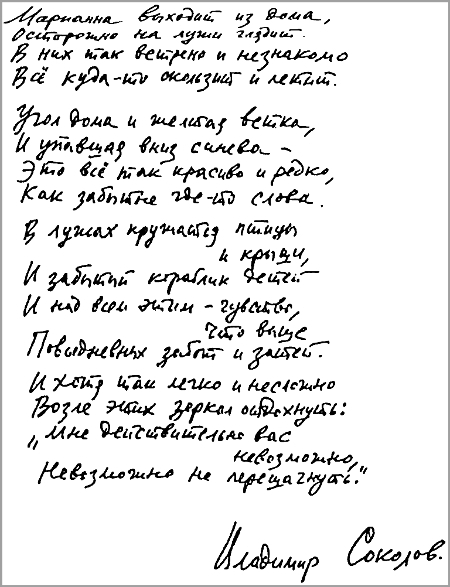 Марианна выходит из дома,
Осторожно на лужи глядит.
В них так ветрено и незнакомо
Всё куда-то скользит и летит.
Угол дома и желтая ветка,
И упавшая вниз синева -
Это всё так красиво и редко,
Как забытые где-то слова.
В лужах кружатся птицы
и крыши,
И забытый кораблик детей
И над всем этим - чувство,
что выше
Повседневных забот и затей.
И хотя там легко и несложно
Возле этих зеркал отдохнуть:
„Мне действительно вас
невозможно,
Невозможно не перешагнуть."
Владимир Соколов.